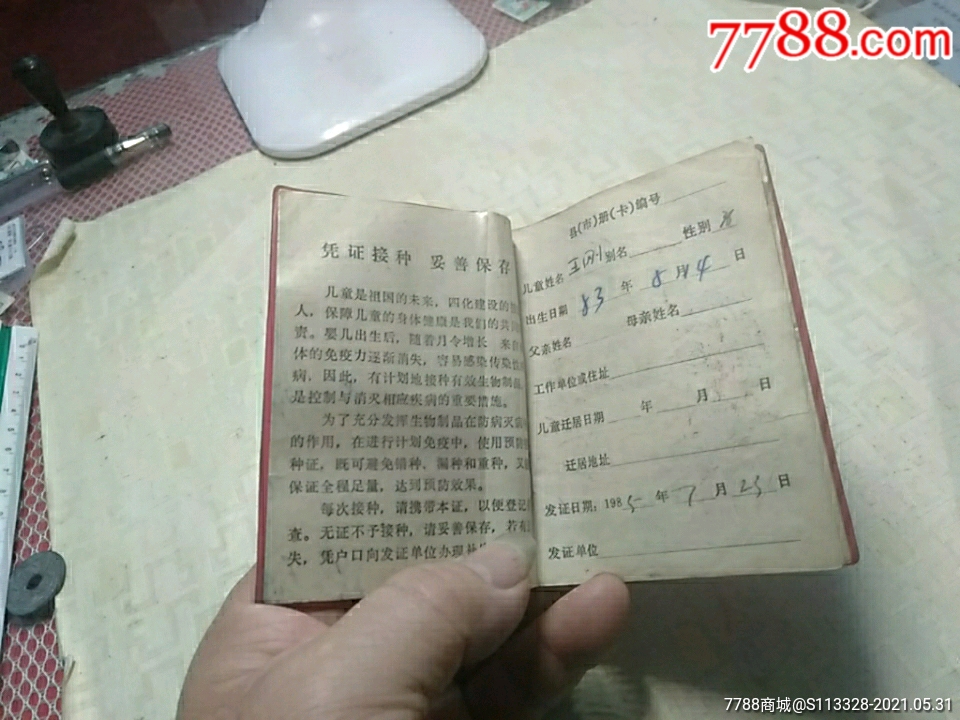 7788.com
凭证接种 妥善保存
儿童是祖国的未来，四化建设的
人，保障儿童的身体健康是我们的共
责。婴儿出生后，随着月令增长 来
体的免疫力逐渐消失，容易感染传染
病，因此，有计划地接种有效生物制品
是控制与消灭相应疾病的重要措施。
为了充分发挥生物制品在防病灭
的作用，在进行计划免疫中，使用预防
种证，既可避免错种、漏种和重种，又
保证全程足量，达到预防效果。
每次接种，请携带本证，以便登记
查。无证不予接种，请妥善保存，若
失，凭户口向发证单位办理补
县(市)册(卡)编号
儿童姓名 王刚 别名 性别
出生日期 83 年 8 月 4 日
父亲姓名 母亲姓名
工作单位或住址
儿童迁居日期 年 月 日
迁居地址
发证日期：1985 年 7 月 25 日
发证单位
7788商城@S113328-2021.05.31